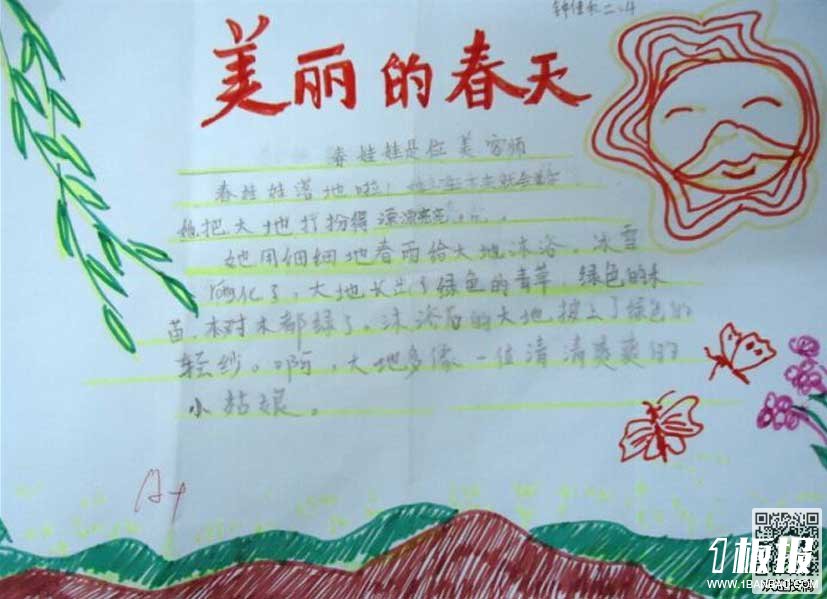 二.4
美丽的春天
春娃娃是位美容师
春娃娃落地啦！就会
她把大地打扮得漂漂亮亮
她用细细地春雨给大地沐浴。冰雪
融化了，大地长出了绿色的青草，绿色的禾
苗，树木都绿了。沐浴后的大地披上了绿色的
轻纱。啊，大地多像一位清清爽爽的
小姑娘。
A+
1板报
WWW.1BANBAO.COM
欢迎投稿